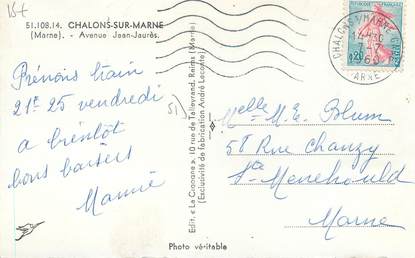 15t
51.108.14. CHALONS-SUR-MARNE
(Marne). - Avenue Jean-Jaurès.
Prenons train
21h 25 vendredi
a bientôt
bons baisers
Mamie
51
Edit. « La Cigogne », 10 rue de Talleyrand, Reims (Marne)
(Exclusivité de fabrication André Leconte)
Photo véritable
CHALONS S/MARNE
7-7
MARNE
0,20
Melle M. E. Blum
58 Rue Chanzy
Ste Menehould
Marne